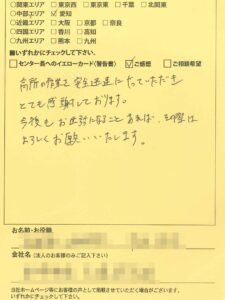 ○関東エリア □東京西 □東京東 □千葉 □北関東
○中部エリア ☑愛知
○近畿エリア □大阪 □京都 □奈良
○四国エリア □香川 □高知
○九州エリア □熊本 □九州
■いずれかにチェックして下さい。
□センター長へのイエローカード(警告書) ☑ご感想 □ご相談希望
高所の作業で安全迅速にやっていただき
とても感謝しております。
今後もお世話になることあれば、御座は
よろしくお願いいたします。
お名前・お役職
会社名(法人のお客様のみご記入下さい)
当社ホームページ等にお客様の声として掲載させていただく場合がございます。
いずれかにチェックして下さい。